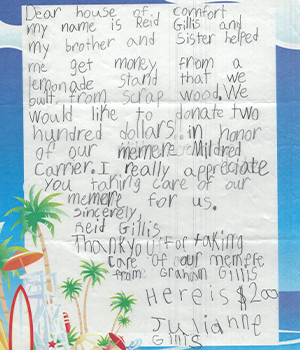 Dear house of comfort
my name is Reid Gillis and
my brother and Sister helped
me get money from a
lemonade stand that we
built from scrap wood. We
would like to donate two
hundred dollars in honor
of our memere Mildred
Carrier. I really appreciate
you taking care of our
memere for us.
Sincerely
Reid Gillis
Thank you for taking
care of our memere
from Graham Gillis
Here is $200
Julianne
Gillis